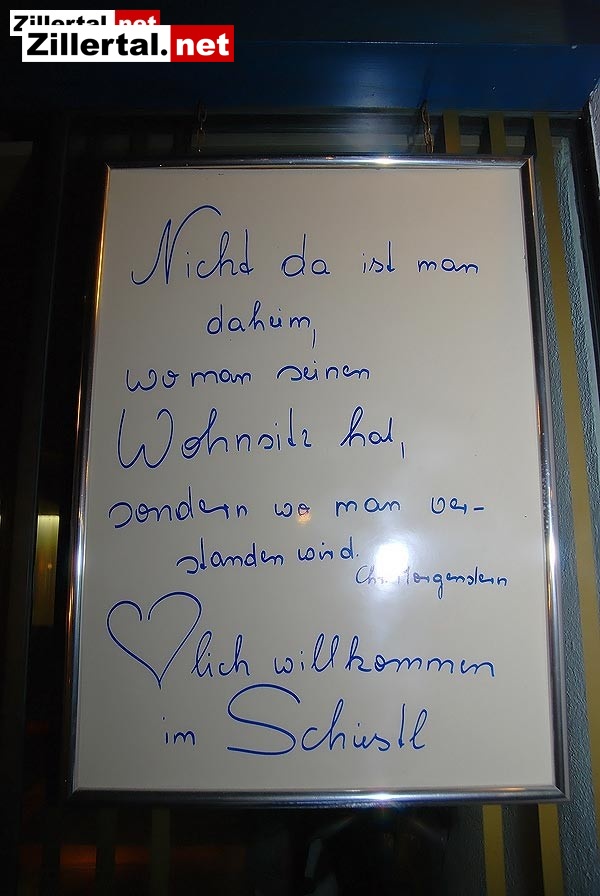 Zillertal.net
Zillertal.net
Nicht da ist man
daheim,
wo man seinen
Wohnsitz hat,
sondern wo man ver-
standen wird.
Chr. Morgenstern
♡lich willkommen
im Schiestl